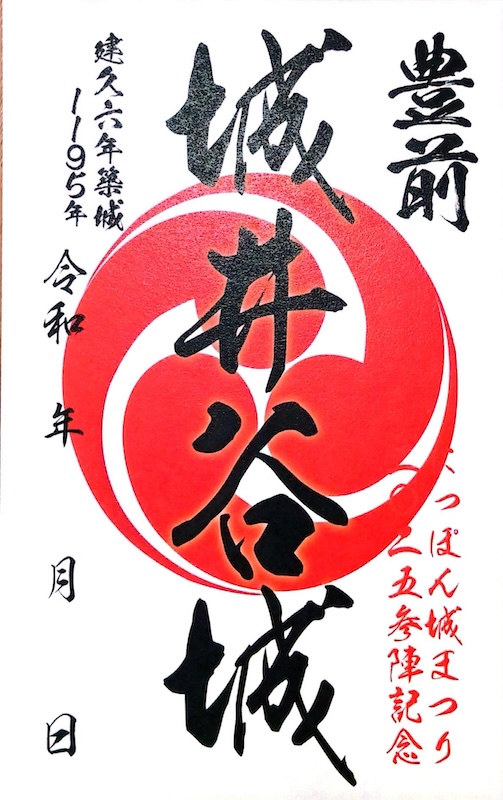 豊前
城井谷城
建久六年築城
1195年
令和 年 月 日
にっぽん城まつり
二〇二五参陣記念